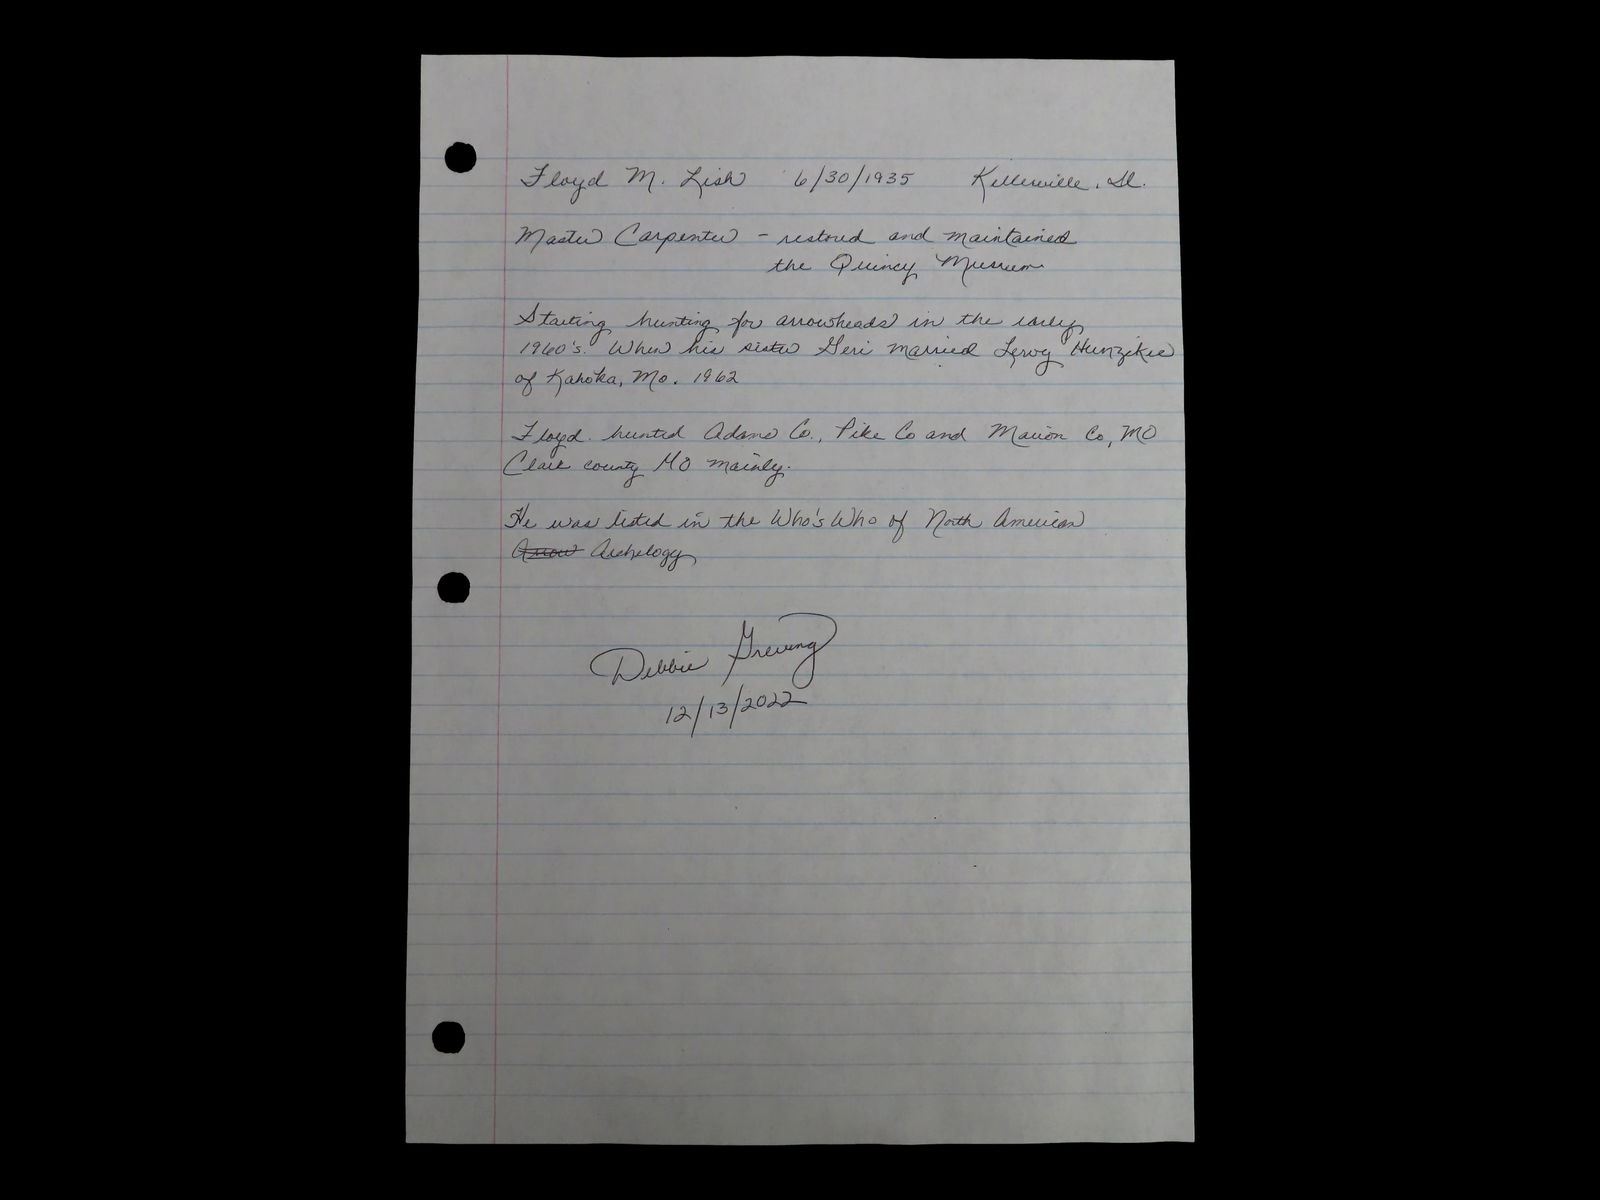 Floyd M. Lish 6/30/1935 Kellerville, Il.
Master Carpenter - restored and maintained
the Quincy Museum
Starting hunting for arrowheads in the early
1960's. When his sister Geri married Leroy Hunziker
of Kahoka, Mo. 1962
Floyd hunted Adams Co., Pike Co and Marion Co, MO
Clark county MO mainly.
He was listed in the Who's Who of North American
Arrow Archelogy
Debbie Greving
12/13/2022